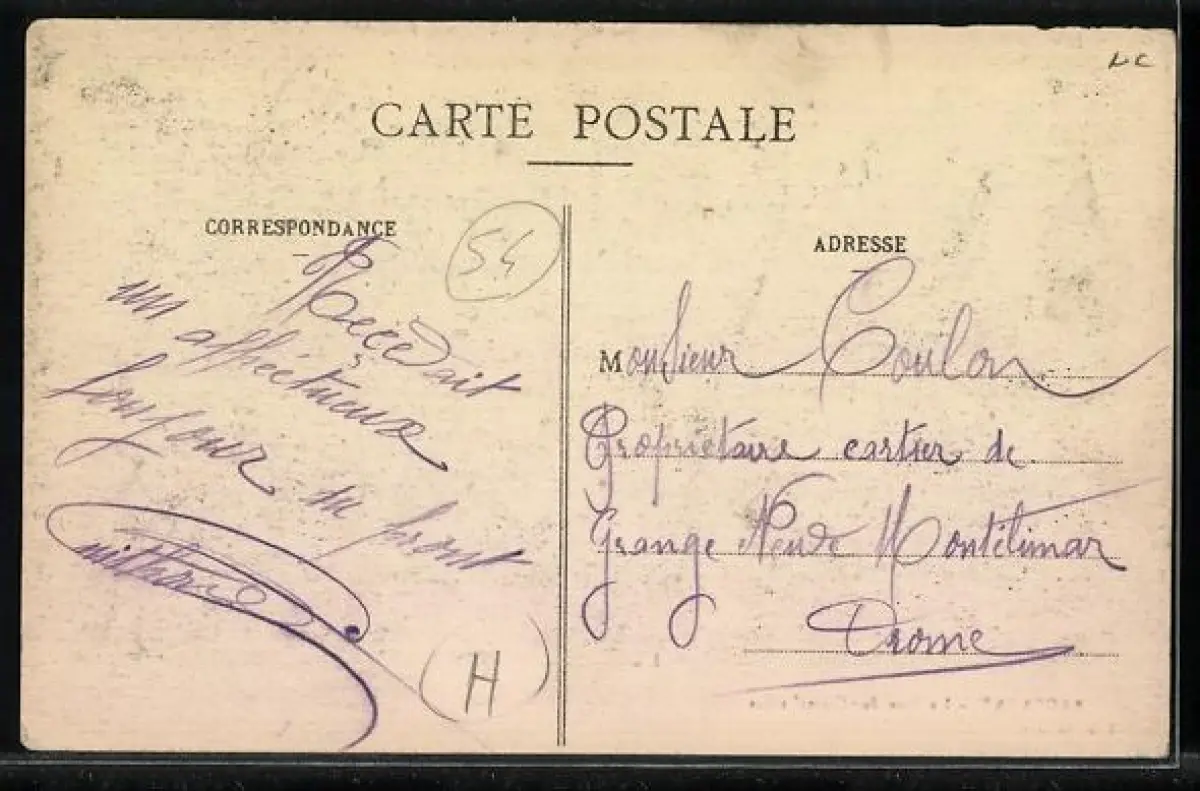 LC
CARTE POSTALE
CORRESPONDANCE
ADRESSE
54
un affectueux
bonjour du front
Monsieur Coulon
Propriétaire cartier de
Grange Neuve Montélimar
Drome
H